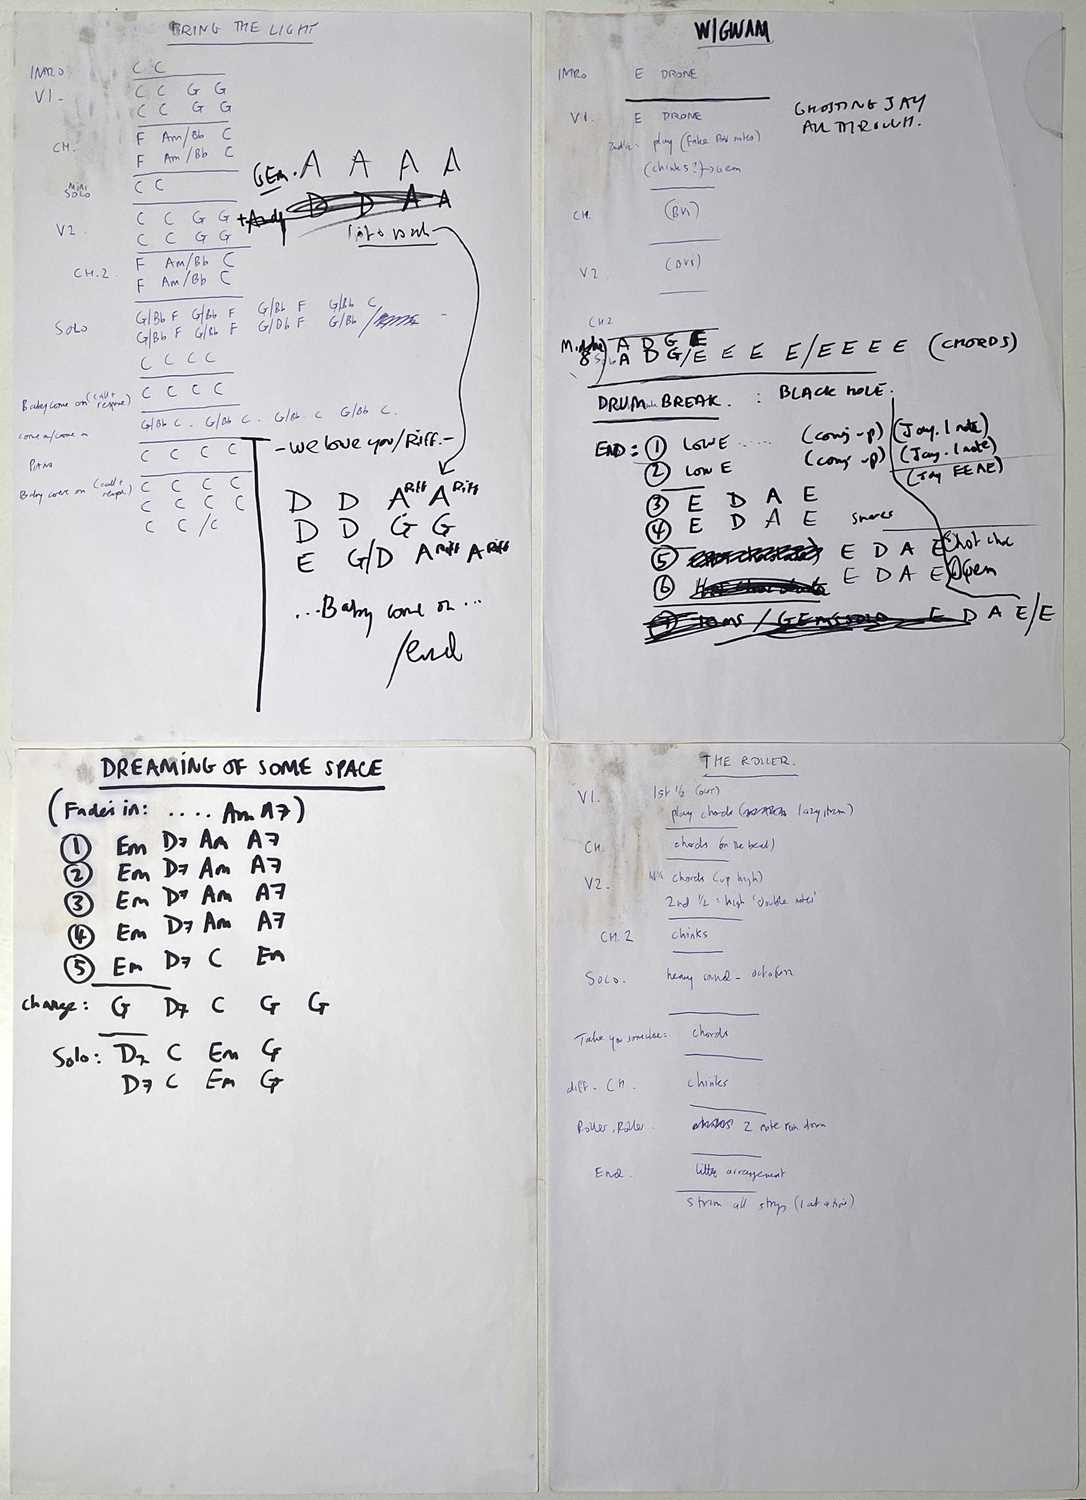 BRING THE LIGHT
INTRO C C
V1. C C G G
C C G G
CH. F Am/Bb C
F Am/Bb C
MINI SOLO C C
V2. C C G G
C C G G
CH.2. F Am/Bb C
F Am/Bb C
SOLO G/Bb F G/Bb F G/Bb F G/Bb C
G/Bb F G/Bb F G/Db F G/Bb /
C C C C
Baby come on (call + response) C C C C
come on/come on G/Bb C. G/Bb C. G/Bb C G/Bb C.
PIANO C C C C
Baby come on (call + respon) C C C C
C C C C
C C /C
GEM. A A A A
+ Andy D D A A
- We love you/Riff. -
D D A Riff A Riff
D D G G
E G/D A Riff A Riff
...Baby come on...
/end
WIGWAM
INTRO E DRONE
V1. E DRONE
GHOSTING JAY
ALL THROUGH.
play (Fake notes)
(chinks?) → Gem
CH. (BVs)
V2 (BVs)
CH2
Middle 8 A D G E
A D G/E E E E/E E E E (CHORDS)
DRUM BREAK. : BLACK HOLE.
END: ① LOW E ..... (Jay. 1 note)
② LOW E (Jay. 1 note)
(Jay EEAE)
③ E D A E
④ E D A E snares
⑤ E D A E
⑥ E D A E Open
⑦ TOMS / GEMS SOLO E D A E/E
DREAMING OF SOME SPACE
(Fades in: .... Am A7)
① Em D7 Am A7
② Em D7 Am A7
③ Em D7 Am A7
④ Em D7 Am A7
⑤ Em D7 C Em
Change: G D7 C G G
Solo: D7 C Em G
D7 C Em G
THE ROLLER.
V1. 1st ½ (out)
play chords (lazy strum)
CH. chords (on the beat)
V2. chords (up high)
2nd ½ = high 'double notes'
CH.2 chinks
SOLO. heavy - octaves
Take you somewhere: chords
diff. CH. chinks
Roller, Roller. 2 note run down
End. little arrangement
strum all strings (1 at a time)